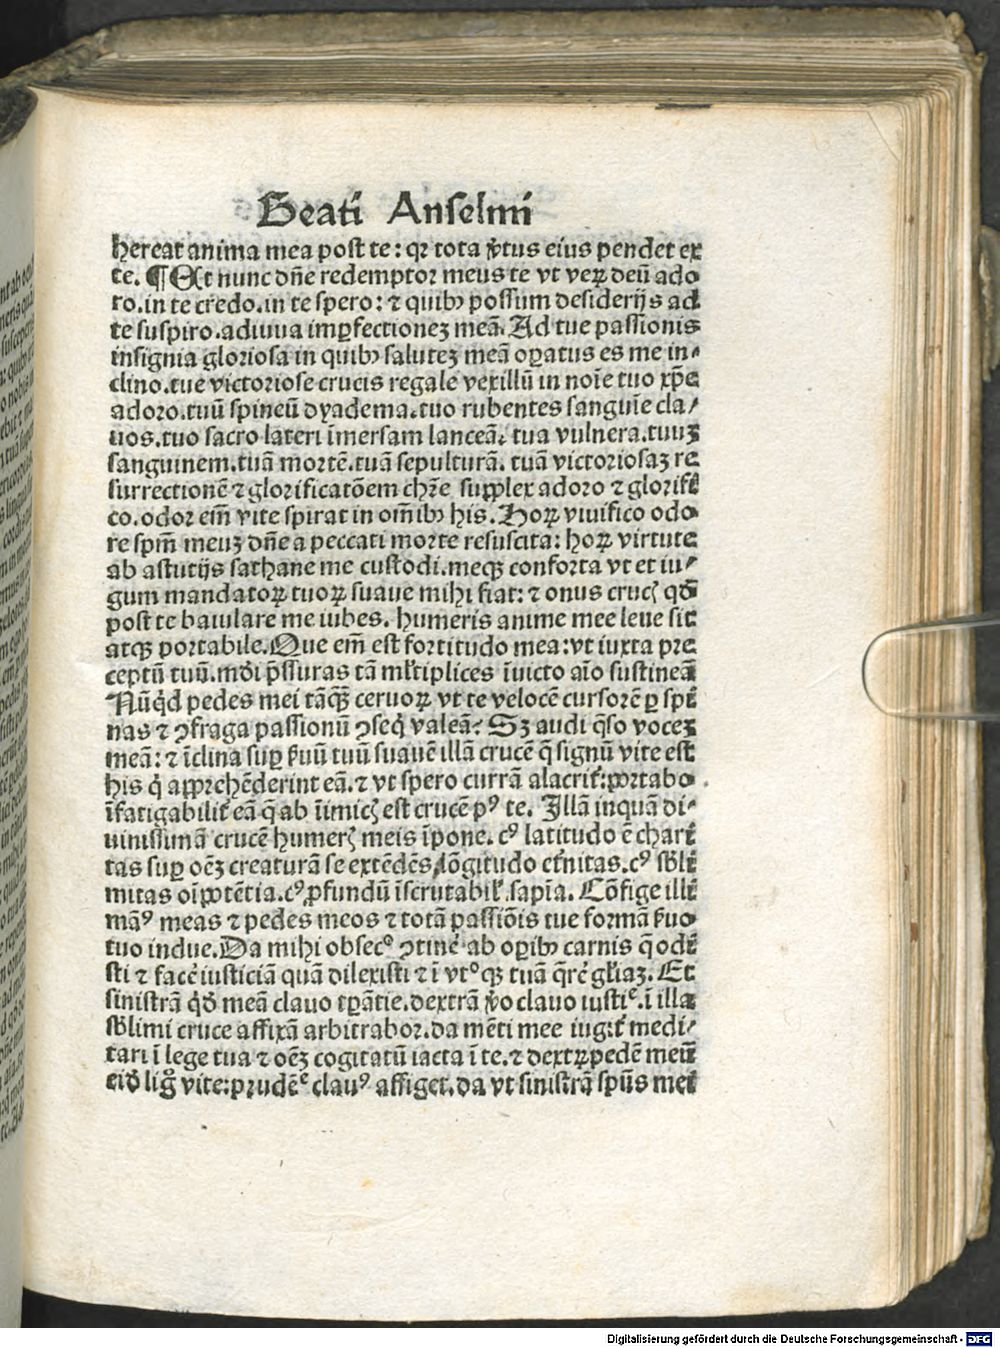 Beati Anselmi
hereat anima mea post te: qꝛ tota v̓tus eius pendet ex
te. ¶ Et nunc dñe redemptoꝛ meus te vt veꝝ deū ado
ro.in te credo.in te spero: ⁊ quibꝰ possum desiderijs ad
te suspiro.adiuua imꝑfectioneꝫ meā. Ad tue passionis
insignia gloriosa in quibꝰ saluteꝫ meā oꝑatus es me in⸗
clino.tue victoriose crucis regale vexillū in noīe tuo xp̄e
adoro.tuū spineū dyadema.tuo rubentes sanguīe cla⸗
uos.tuo sacro lateri īmersam lanceā. tua vulnera.tuuꝫ
sanguinem.tuā moꝛtē.tuā sepulturā. tuā victoriosaꝫ re
surrectionē ⁊ gloꝛificatōem chꝛē supplex adoro ⁊ gloꝛifi
co.odoꝛ em̄ vite spirat in om̄ibꝰ his. Hoꝝ viuifico odo
re spm̄ meuꝫ dñe a peccati moꝛte resuscita: hoꝝ virtute
ab astutijs sathane me custodi.meqꝫ confoꝛta vt et iu⸗
gum mandatoꝝ tuoꝝ suaue mihi fiat: ⁊ onus crucꝭ qd̄
post te baiulare me iubes. humeris anime mee leue sit
atqꝫ poꝛtabile. Que em̄ est foꝛtitudo mea: vt iuxta pre
ceptū tuū. mūdi p̄ssuras tā ml̓tiplices īuicto aīo sustineā
Nūqͥd pedes mei tāqꝫ ceruoꝝ vt te velocē cursoꝛē ꝑ spi
nas ⁊ ꝯfraga passionū ꝯseqͥ valeā? Sꝫ audi q̄so voceꝫ
meā: ⁊ īclina suꝑ s̓uū tuū suauē illā crucē q̄ signū vite est
his qͥ appꝛehēderint eā. ⁊ vt spero currā alacrit̓: poꝛtabo
īfatigabilit̓ eā q̄ ab īimicꝭ est crucē pꝰ te. Illā inquā di⸗
uinissimā crucē humerꝭ meis īpone. cꝰ latitudo ē chari
tas suꝑ oēꝫ creaturā se extēdēs, lōgitudo et̓nitas. cꝰ sb̓li
mitas oīpotētia. cꝰ ꝓfundū īscrutabil̓ sapīa. Cōfige illi
māꝰ meas ⁊ pedes meos ⁊ totā passiōis tue foꝛmā s̓uo
tuo indue. Da mihi obsecͦ ꝯtine̓ ab oꝑibꝰ carnis q̄ odi
sti ⁊ face̓ iusticiā quā dilexisti ⁊ ī vtͦqꝫ tuā q̄re̓ gl̓iaꝫ. Et
sinistrā qͥdē meā clauo tꝑātie. dextrā v̓o clauo iustiᵉ. ī illa
sb̓limi cruce affixā arbitraboꝛ. da mēti mee iugit̓ medi⸗
tari ī lege tua ⁊ oēꝫ cogitatū iacta ī te. ⁊ dextꝝ pedē meū
eidē lig̊ vite: prudēᵉ clauꝰ affiget. da vt sinistrā spūs mei
Digitalisierung gefördert durch die Deutsche Forschungsgemeinschaft - DFG